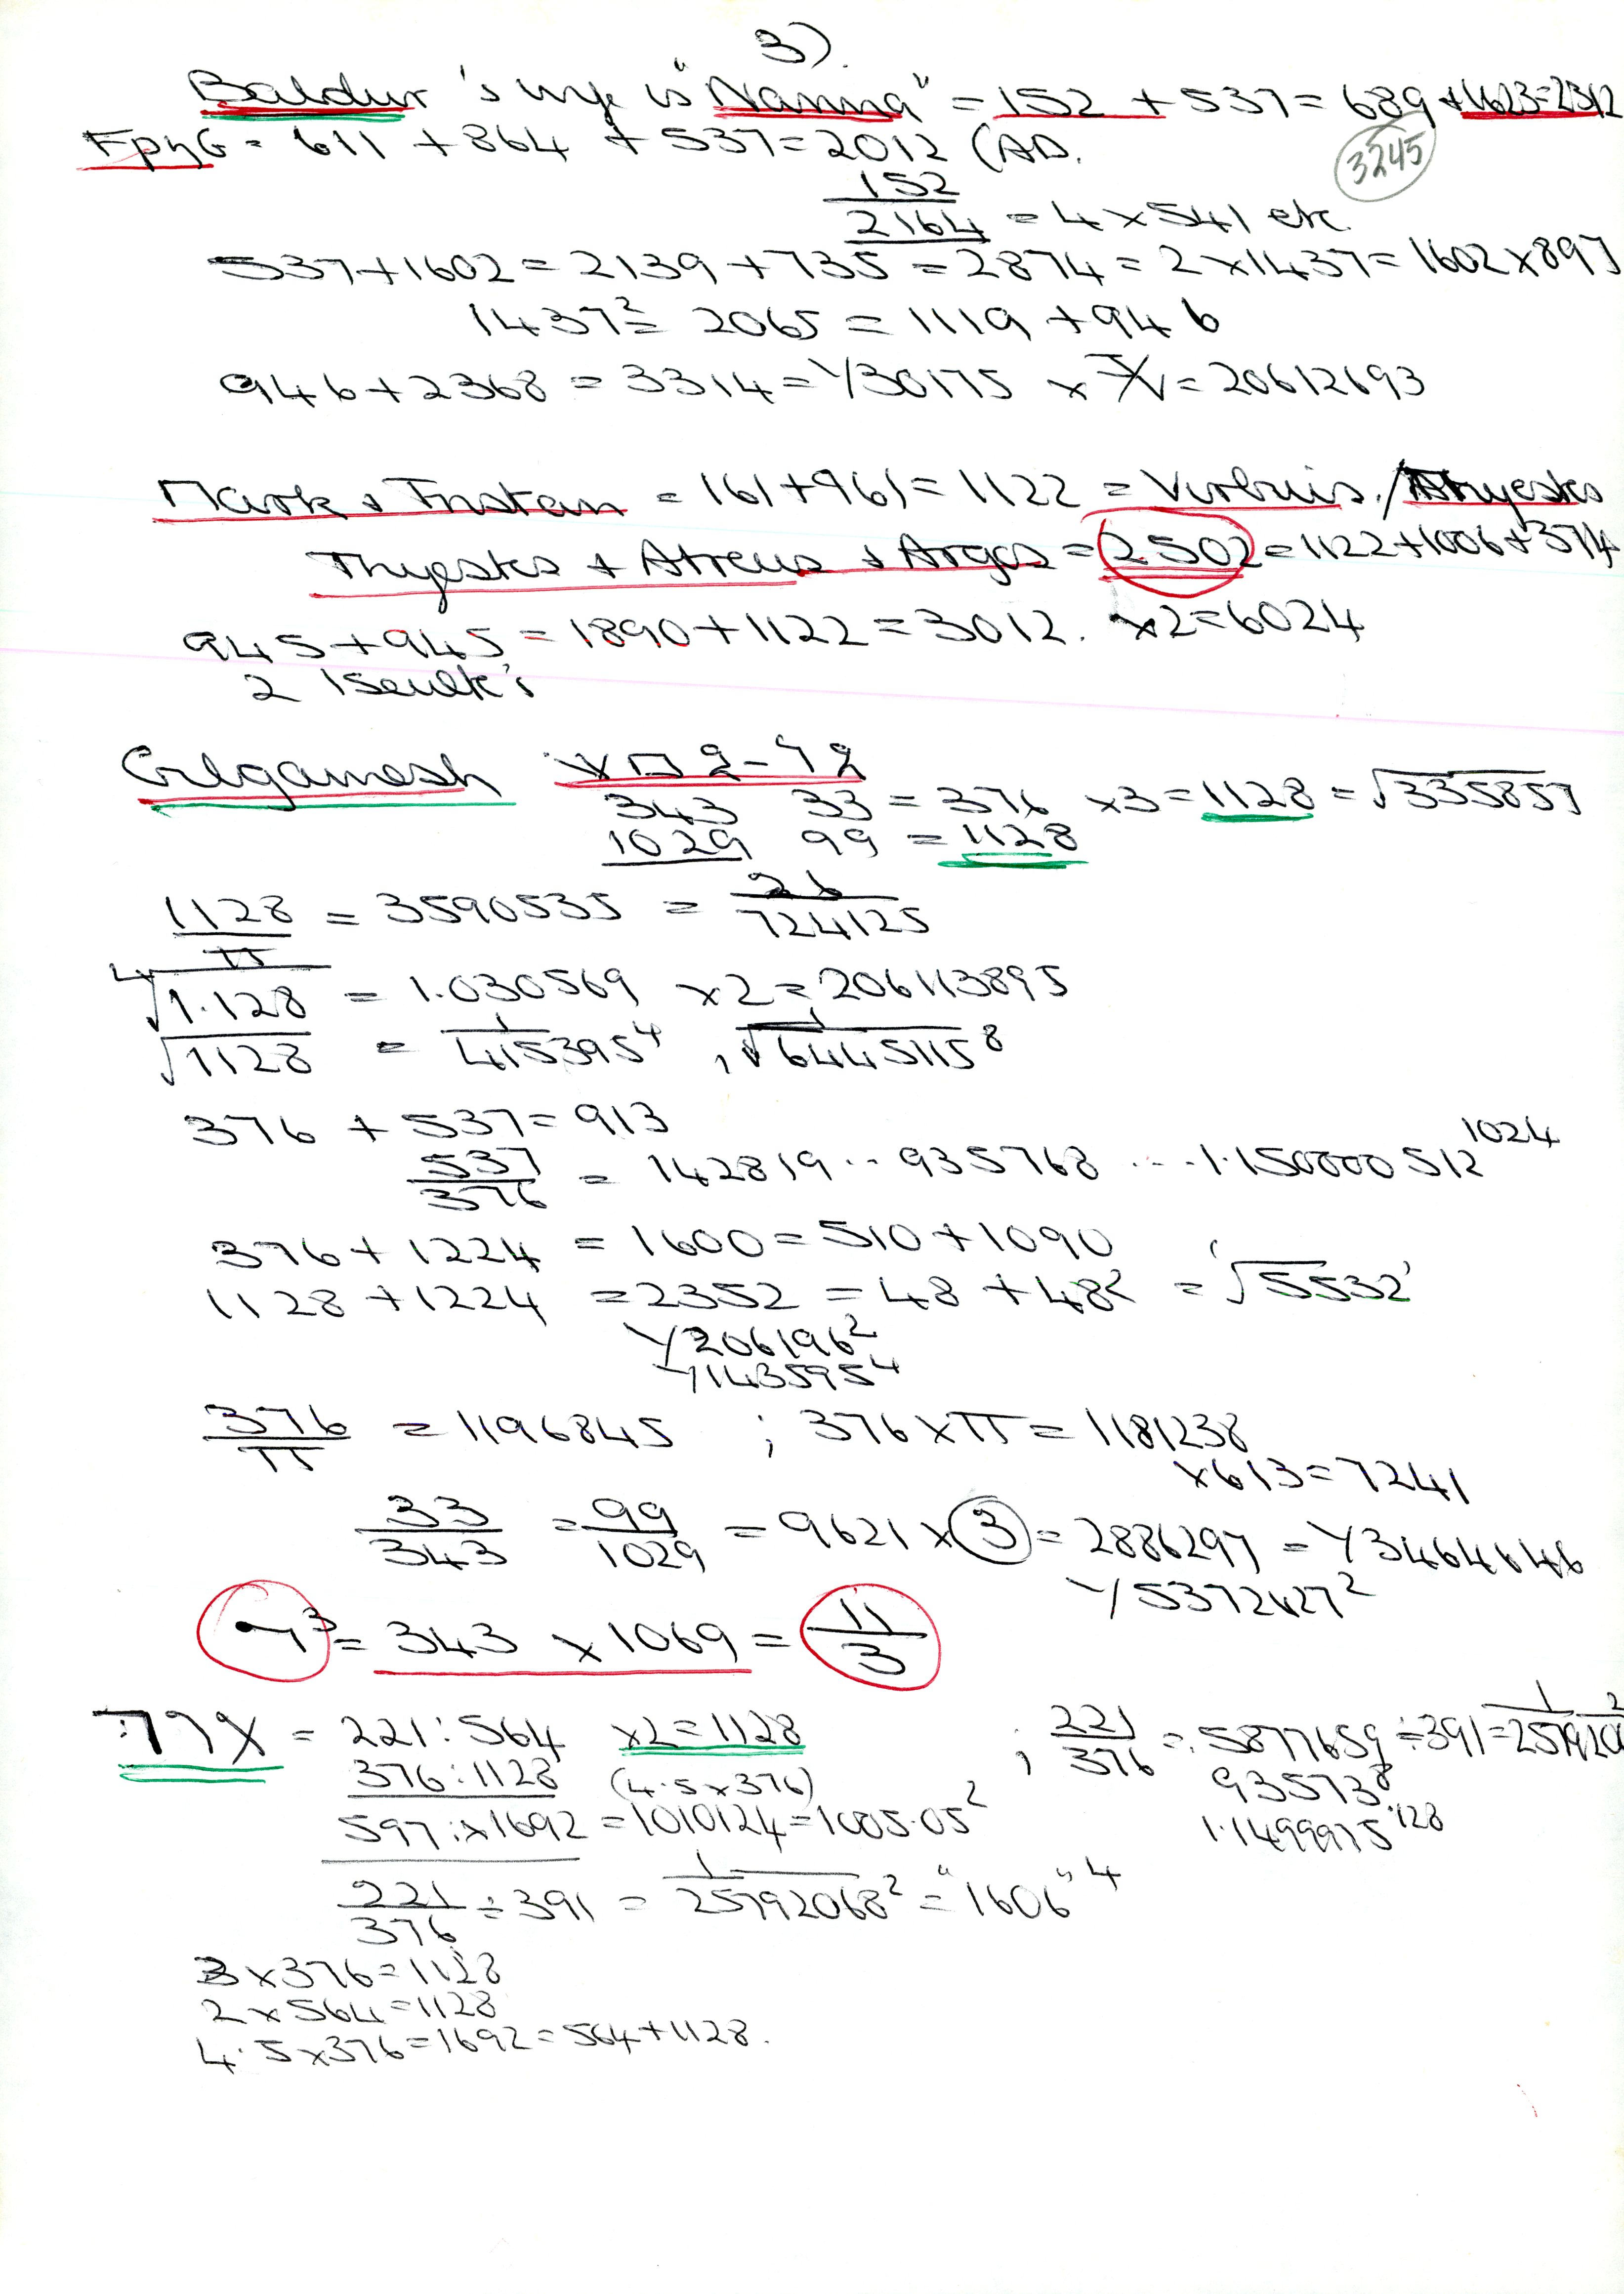 3)
Baldur's wife is "Nanna" = 152 + 537 = 689 + 1623 = 2312
= 611 + 864 + 537 = 2012 (AD.
3245
152
2164 = 4 x 541 etc.
537 + 1602 = 2139 + 735 = 2874 = 2 x 1437 = 1602 x 897
1437² = 2065 = 1119 + 946
946 + 2368 = 3314 = 1/30175 x = 20612693
Mark & Tristan = 161 + 961 = 1122 = Virbius. / Thyestes
Thyestes + Atreus + Argos = 2502 = 1122 + 1006 + 374
945 + 945 = 1890 + 1122 = 3012. x 2 = 6024
2 Iseulte's
Gilgamesh
343 33 = 376 x 3 = 1128 = √335857
1029 99 = 1128
1128/π = 3590535 = 26/724125
∜1.128 = 1.030569 x 2 = 206113895
√1128 = 1/415395⁴ , 1/√6445115⁸
376 + 537 = 913
537/376 = 142819 .. 935768 ... 1.150000512¹⁰²⁴
376 + 1224 = 1600 = 510 + 1090
1128 + 1224 = 2352 = 48 + 48² = '√5532'
1/206196²
1/1435954
376/π = 1196845 ; 376 x π = 1181238
x 613 = 7241
33/343 = 99/1029 = 9621 x 3 = 2886297 = 1/3464646
1/5372627²
7³ = 343 x 1069 = 11/3
= 221 : 564 x 2 = 1128 ; 221/376 = .5877659 ÷ 391 = 1/2579206²
376 : 1128 (4.5 x 376) 935738
597 : x 1692 = 1010124 = 1005.05² 1.1499975¹²⁸
221/376 ÷ 391 = 1/25792068² = "1606"⁴
3 x 376 = 1128
2 x 564 = 1128
4.5 x 376 = 1692 = 564 + 1128.